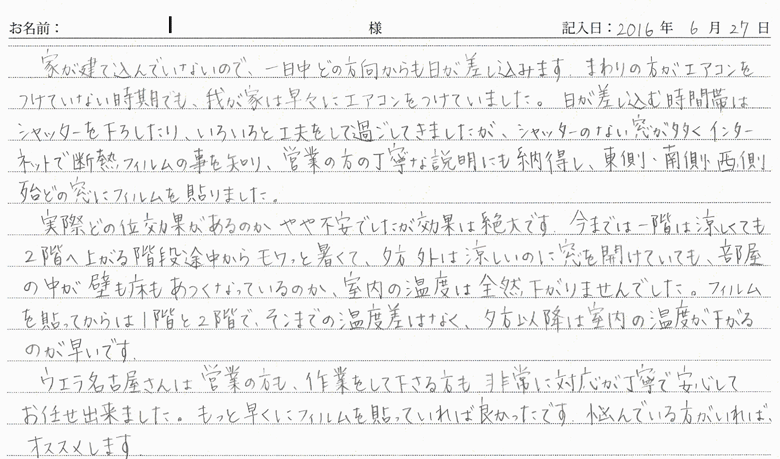 お名前： 様 記入日：2016年 6月 27日
家が建て込んでいないので、一日中どの方向からも日が差し込みます。まわりの方がエアコンを
つけていない時期でも、我が家は早々にエアコンをつけていました。日が差し込む時間帯は
シャッターを下ろしたり、いろいろと工夫をして過ごしてきましたが、シャッターのない窓が多くインター
ネットで断熱フィルムの事を知り、営業の方の丁寧な説明にも納得し、東側・南側・西側
殆どの窓にフィルムを貼りました。
実際どの位効果があるのか やや不安でしたが効果は絶大です。今までは一階は涼しくても
2階へ上がる階段途中からモワっと暑くて、夕方外は涼しいのに窓を開けていても、部屋
の中が壁も床もあつくなっているのか、室内の温度は全然下がりませんでした。フィルム
を貼ってからは1階と2階で、そこまでの温度差はなく、夕方以降は室内の温度が下がる
のが早いです。
ウエラ名古屋さんは営業の方も、作業をして下さる方も非常に対応が丁寧で安心して
お任せ出来ました。もっと早くにフィルムを貼っていれば良かったです。悩んでいる方がいれば、
オススメします。